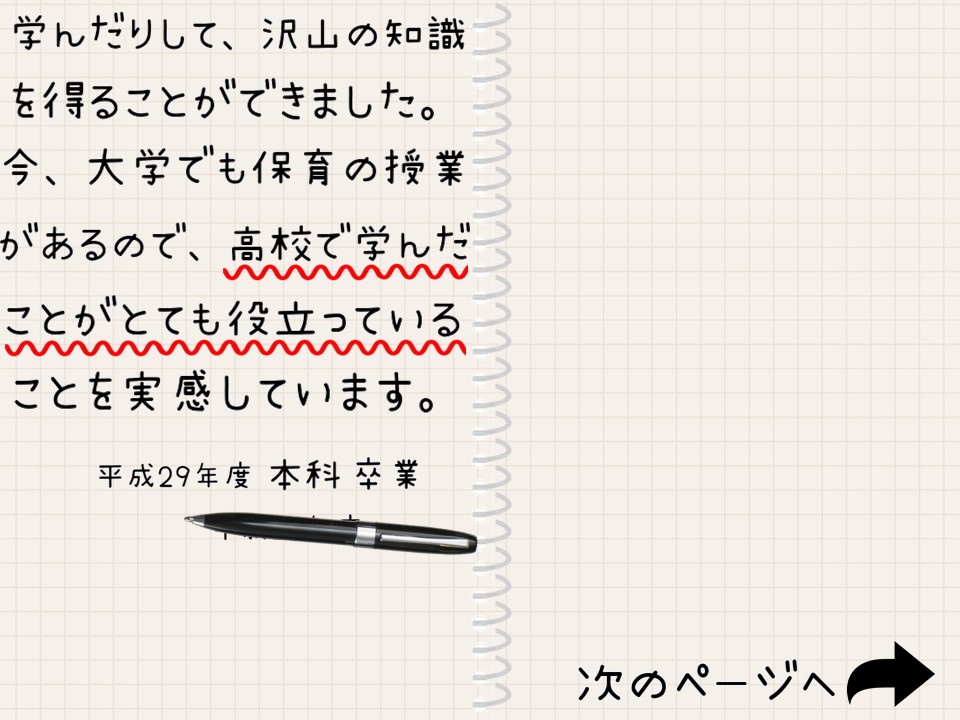 学んだりして、沢山の知識
を得ることができました。
今、大学でも保育の授業
があるので、高校で学んだ
ことがとても役立っている
ことを実感しています。
平成29年度 本科卒業
次のページへ